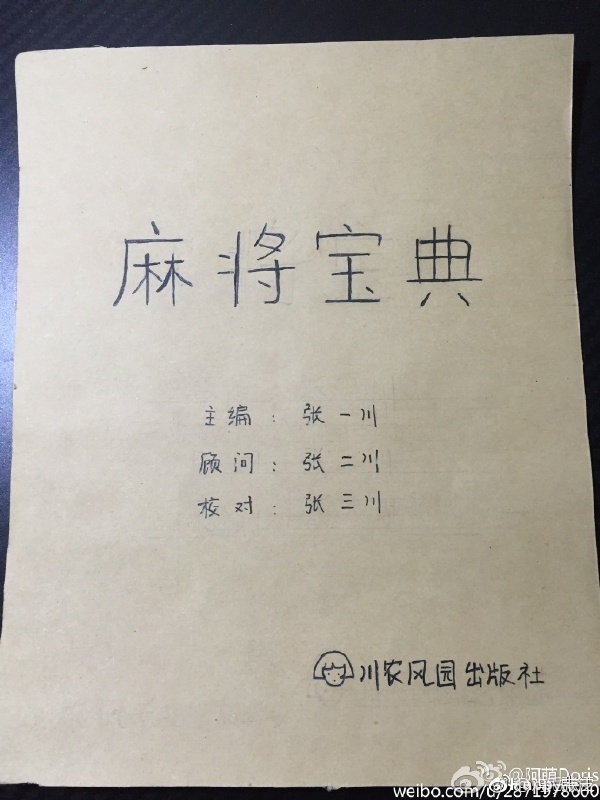 麻将宝典
主编：张一川
顾问：张二川
核对：张三川
川农风园出版社
@阿萌Doris
weibo.com/u/2871978600